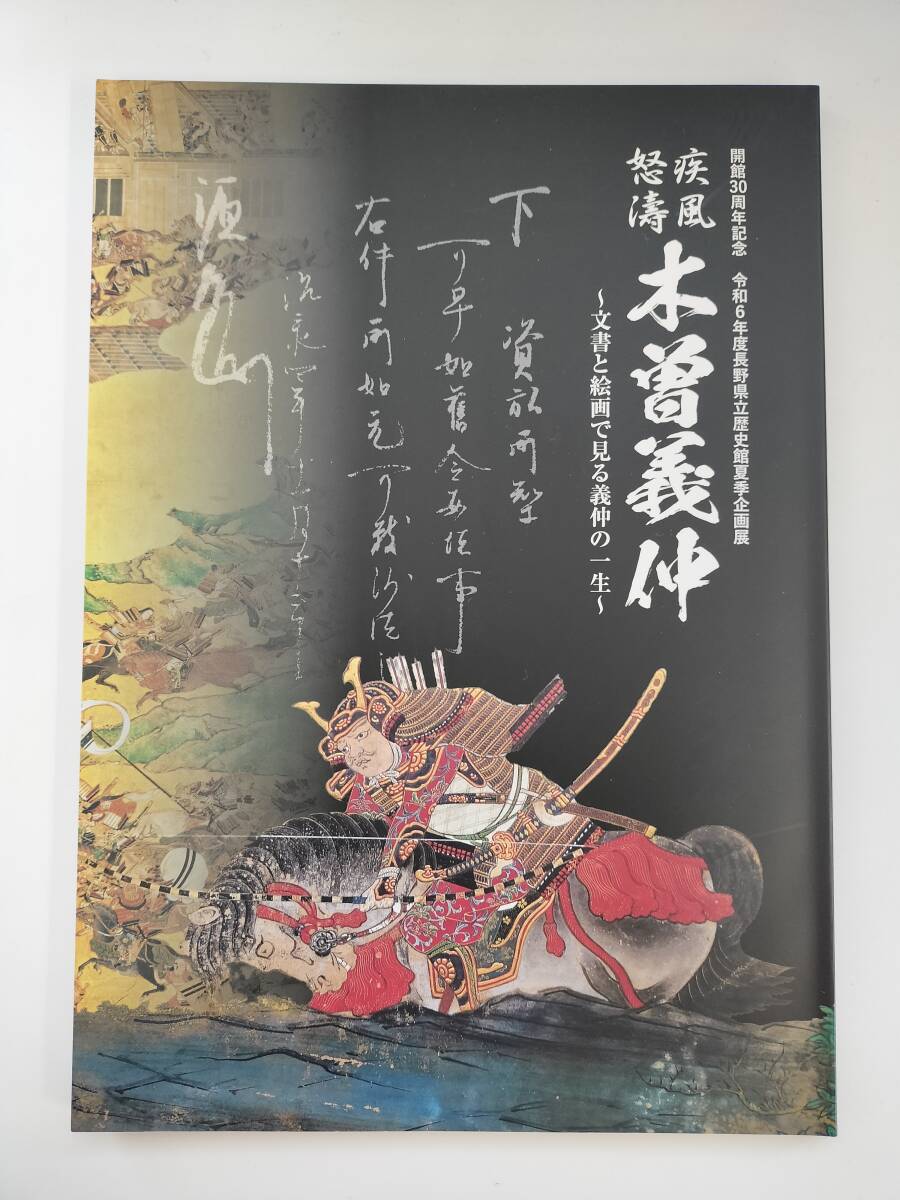 開館30周年記念　令和6年度長野県立歴史館夏季企画展
疾風
怒濤
木曽義仲
～文書と絵画で見る義仲の一生～
下　資弘所知
可早如舊令安堵事
右件所如元可致沙汰